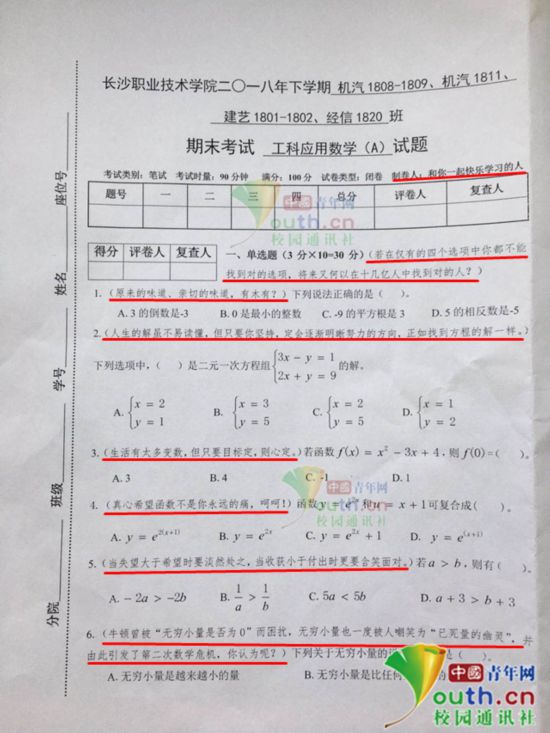 长沙职业技术学院二〇一八年下学期 机汽1808-1809、机汽1811、
建艺1801-1802、经信1820 班
期末考试 工科应用数学(A) 试题
考试类别:笔试 考试时量:90分钟 满分:100分 试卷类型:闭卷 制卷人:和你一起快乐学习的人
题号 一 二 三 四 总分 评卷人 复查人
得分 评卷人 复查人
一、单选题(3分×10=30分)(若在仅有的四个选项中你都不能
找到对的选项,将来又何以在十几亿人中找到对的人?)
1.(原来的味道,亲切的味道,有木有?)下列说法正确的是( )。
A. 3的倒数是-3 B. 0是最小的整数 C. -9的平方根是3 D. 5的相反数是-5
2.(人生的解虽不易读懂,但只要你坚持,定会逐渐明晰努力的方向,正如找到方程的解一样。)
下列选项中,( )是二元一次方程组 {3x − y = 1 2x + y = 9 的解。
A. {x = 2 y = 1 B. {x = 3 y = 5 C. {x = 2 y = 5 D. {x = 1 y = 2
3.(生活有太多变数,但只要目标定,则心定。)若函数 f(x) = x² − 3x + 4,则 f(0)=( )。
A. 3 B. 4 C. -1 D. 1
4.(真心希望函数不是你永远的痛,呵呵!)函数 y = 和 u = x + 1 可复合成( )。
A. y = e^{2(x+1)} B. y = e^{2x} C. y = e^{2x} + 1 D. y = e^{(x+1)}
5.(当失望大于希望时要淡然处之,当收获小于付出时更要含笑面对。)若 a > b,则有( )。
A. − 2a > −2b B. 1/a > 1/b C. 5a < 5b D. a + 3 > b + 3
6.(牛顿曾被“无穷小量是否为0”而困扰,无穷小量也一度被人嘲笑为“已死量的幽灵”,并
由此引发了第二次数学危机,你认为呢?)下列关于无穷小量的 是( )。
A. 无穷小量是越来越小的量 B. 无穷小量是比任何 的
座位号
姓名
学号
班级
分院
中國青年网
youth.cn
校园通讯社
中國青年网
youth.cn
校园通讯社
中國青年网
youth.cn
校园通讯社